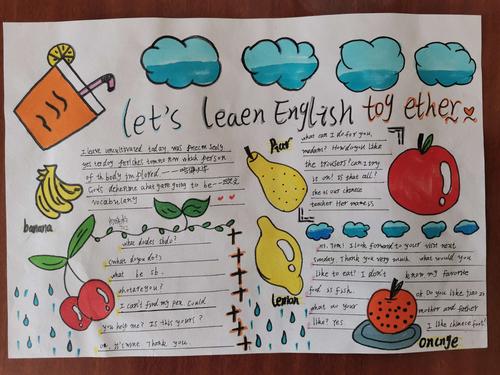 let's leaen English tog ether
I leave uncultivated today, was
yesterday perishes tomorrow which person
of th body im plored
Gods determine what gate going to be
vocabulary
banana
what dudes shdo?
(what do you do?)
what be sb.
whatareyou?
I can't find my pen. Could
you help me? Is this yours?
oh, it's mine. Thank you.
Pear
what can I do for you,
madam? How do you like
the trousers? can I try
is on? Is that all?
she is our chinese
teacher. Her name is
Lemon
Hi, Tom! I look forward to your visit next
sunday. Thank you very much. what would you
like to eat? I don't know my favorite
food is fish. ok Do you like
what do your mother and father
like? Yes. I like chinese food!
orange